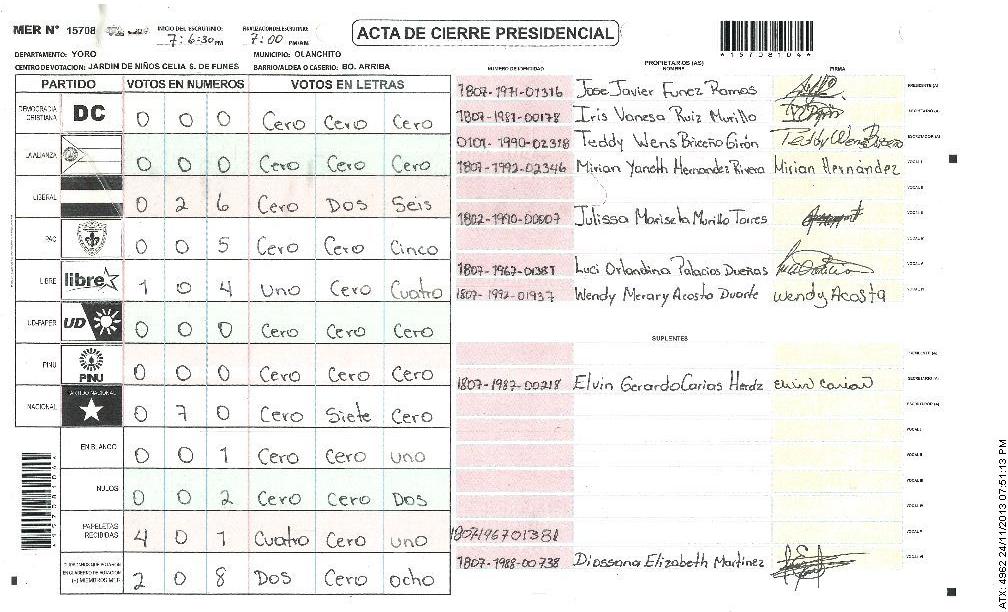 MER N° 15708
INICIO DEL ESCRUTINIO: 7:6:30 PM
FINALIZACION DEL ESCRUTINIO: 7:00 PM/AM
ACTA DE CIERRE PRESIDENCIAL
*15708104*
DEPARTAMENTO: YORO
MUNICIPIO: OLANCHITO
CENTRO DE VOTACION: JARDIN DE NIÑOS CELIA S. DE FUNES
BARRIO/ALDEA O CASERIO: BO. ARRIBA
PARTIDO VOTOS EN NUMEROS VOTOS EN LETRAS
DEMOCRACIA CRISTIANA DC 0 0 0 Cero Cero Cero
LA ALIANZA 0 0 0 Cero Cero Cero
LIBERAL 0 2 6 Cero Dos Seis
PAC 0 0 5 Cero Cero Cinco
LIBRE libre 1 0 4 Uno Cero Cuatro
UD-FAPER UD 0 0 0 Cero Cero Cero
PINU PINU 0 0 0 Cero Cero Cero
NACIONAL PARTIDO NACIONAL 0 7 0 Cero Siete Cero
EN BLANCO 0 0 1 Cero Cero uno
NULOS 0 0 2 Cero Cero Dos
PAPELETAS RECIBIDAS 4 0 1 Cuatro Cero uno
CIUDADANOS QUE VOTARON EN CUADERNO DE VOTACION (+) MIEMBROS MER 2 0 8 Dos Cero ocho
PROPIETARIOS (AS)
NUMERO DE IDENTIDAD NOMBRE FIRMA
1807-1971-01316 Jose Javier Funez Ramos PRESIDENTE (A)
1807-1981-00178 Iris Vanesa Ruiz Murillo SECRETARIO (A)
0101-1990-02318 Teddy Wens Briceño Girón Teddy Wens Briceño ESCRUTADOR (A)
1807-1992-02346 Mirian Yaneth Hernandez Rivera Mirian Hernández VOCAL I
VOCAL II
1802-1990-00007 Julissa Marisela Murillo Torres VOCAL III
VOCAL IV
1807-1967-01381 Luci Orlandina Palacios Dueñas VOCAL V
1807-1992-01937 Wendy Merary Acosta Duarte Wendy Acosta VOCAL VI
SUPLENTES
PRESIDENTE (A)
1807-1987-00218 Elvin Gerardo Carias Herdz Elvin Carias SECRETARIO (A)
ESCRUTADOR (A)
VOCAL I
VOCAL II
VOCAL III
VOCAL IV
1807196701381 VOCAL V
1807-1988-00738 Diossana Elizabeth Martinez VOCAL VI
*15708104*
ATX: 4962 24/11/2013 07:51:13 PM